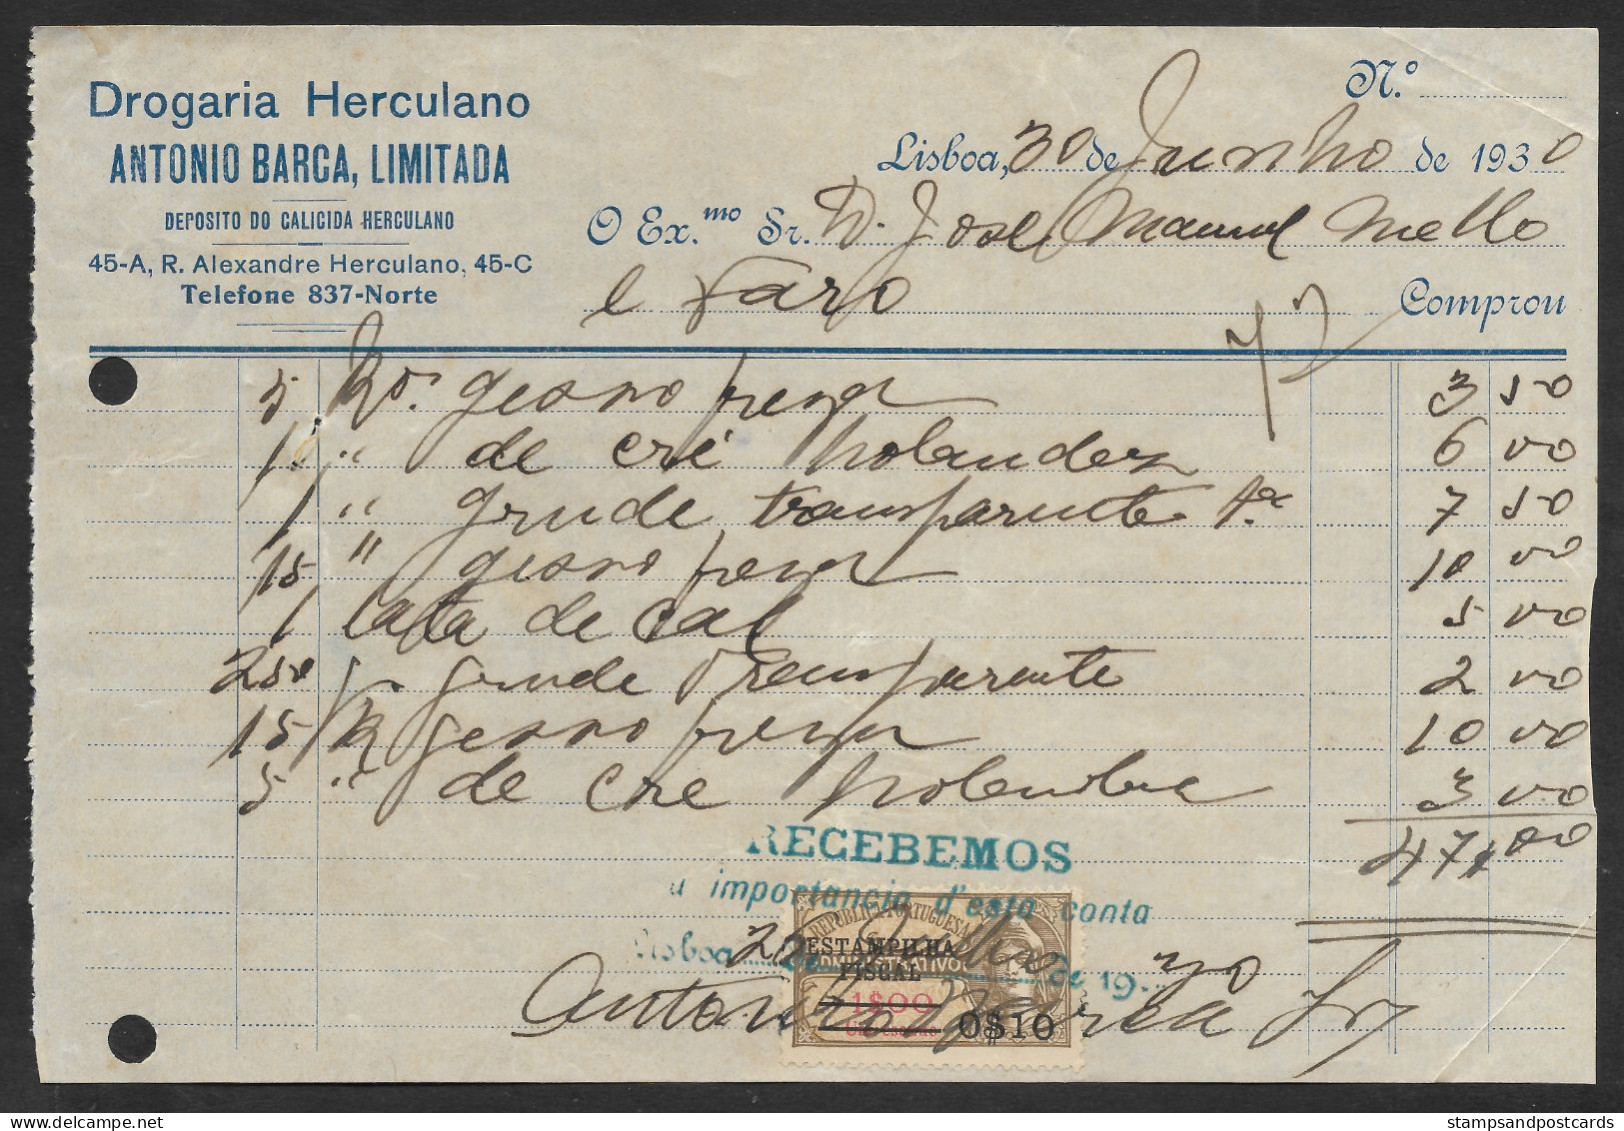 Drogaria Herculano
ANTONIO BARCA, LIMITADA
DEPOSITO DO CALICIDA HERCULANO
45-A, R. Alexandre Herculano, 45-C
Telefone 837-Norte
N.º
Lisboa, 30 de Junho de 1930
O Ex.mo Sr. D. José Manuel Mello
e Faro Comprou
5 Ko. gesso 3 50
1 " de cré holandez 6 00
1 " grude transparente 1.ª 7 50
15 " gesso 10 00
1 lata de cal 5 00
250 gr. grude transparente 2 00
15 K gesso 10 00
5 " de cré 3 00
47,00
RECEBEMOS
a importancia d'esta conta
Lisboa 2 de Julho de 1930
REPUBLICA PORTUGUESA
ESTAMPILHA
FISCAL
1$00
0$10
Antonio Barca Ld
stampsandpostcards